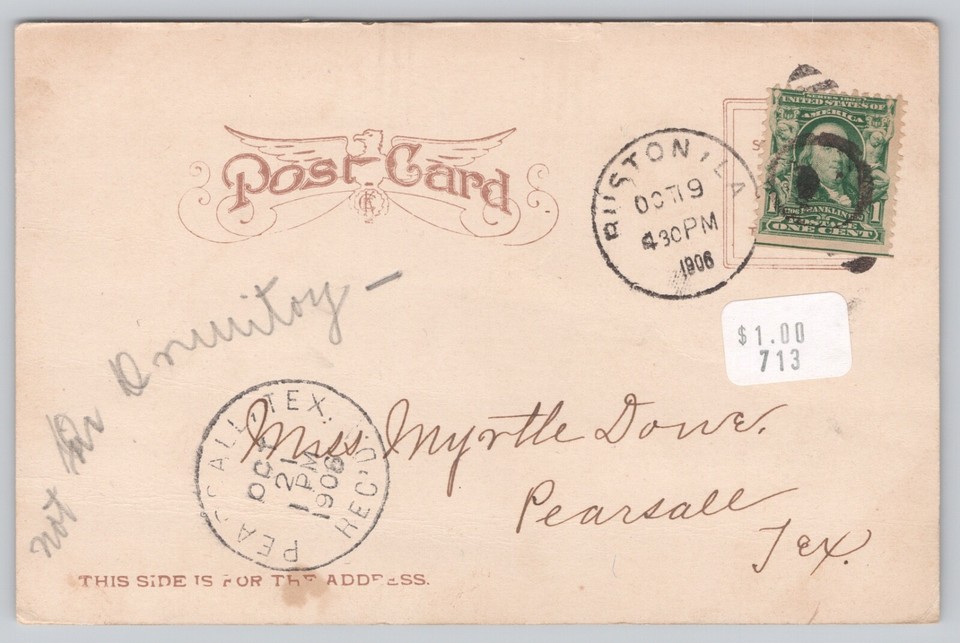 Post Card
RUSTON, LA
OCT 19
4 30 PM
1906
SERIES 1902
UNITED STATES OF
AMERICA
1 FRANKLIN 1
POSTAGE
ONE CENT
$1.00
713
not in Dormitoy -
PEARSALL, TEX.
OCT
21
1 PM
1906
REC'D.
Miss Myrtle Dowe.
Pearsall
Tex.
THIS SIDE IS FOR THE ADDRESS.